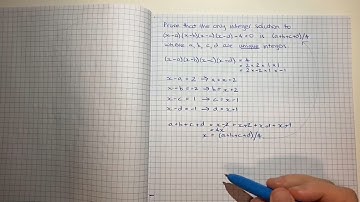 Prove that the only integer solution to
(x-a)(x-b)(x-c)(x-d)-4=0 is (a+b+c+d)/4
where a, b, c, d are unique integers.
(x-a)(x-b)(x-c)(x-d) = 4
= 2 × 2 × 1 × 1
= 2 × -2 × 1 × -1
x-a = 2 → a = x-2
x-b = -2 → b = x+2
x-c = 1 → c = x-1
x-d = -1 → d = x+1
a+b+c+d = x-2 + x+2 + x-1 + x+1
= 4x
x = (a+b+c+d)/4